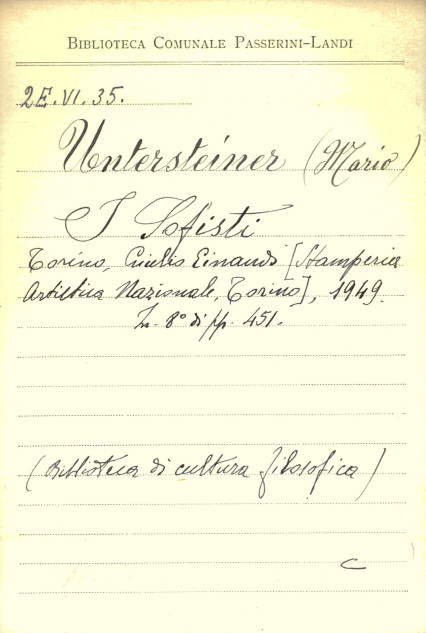 BIBLIOTECA COMUNALE PASSERINI-LANDI
2E.VI.35.
Untersteiner (Mario)
I Sofisti
Torino, Giulio Einaudi [Stamperia
Artistica Nazionale, Torino], 1949.
In-8° di pp. 451.
(Biblioteca di cultura filosofica)
C